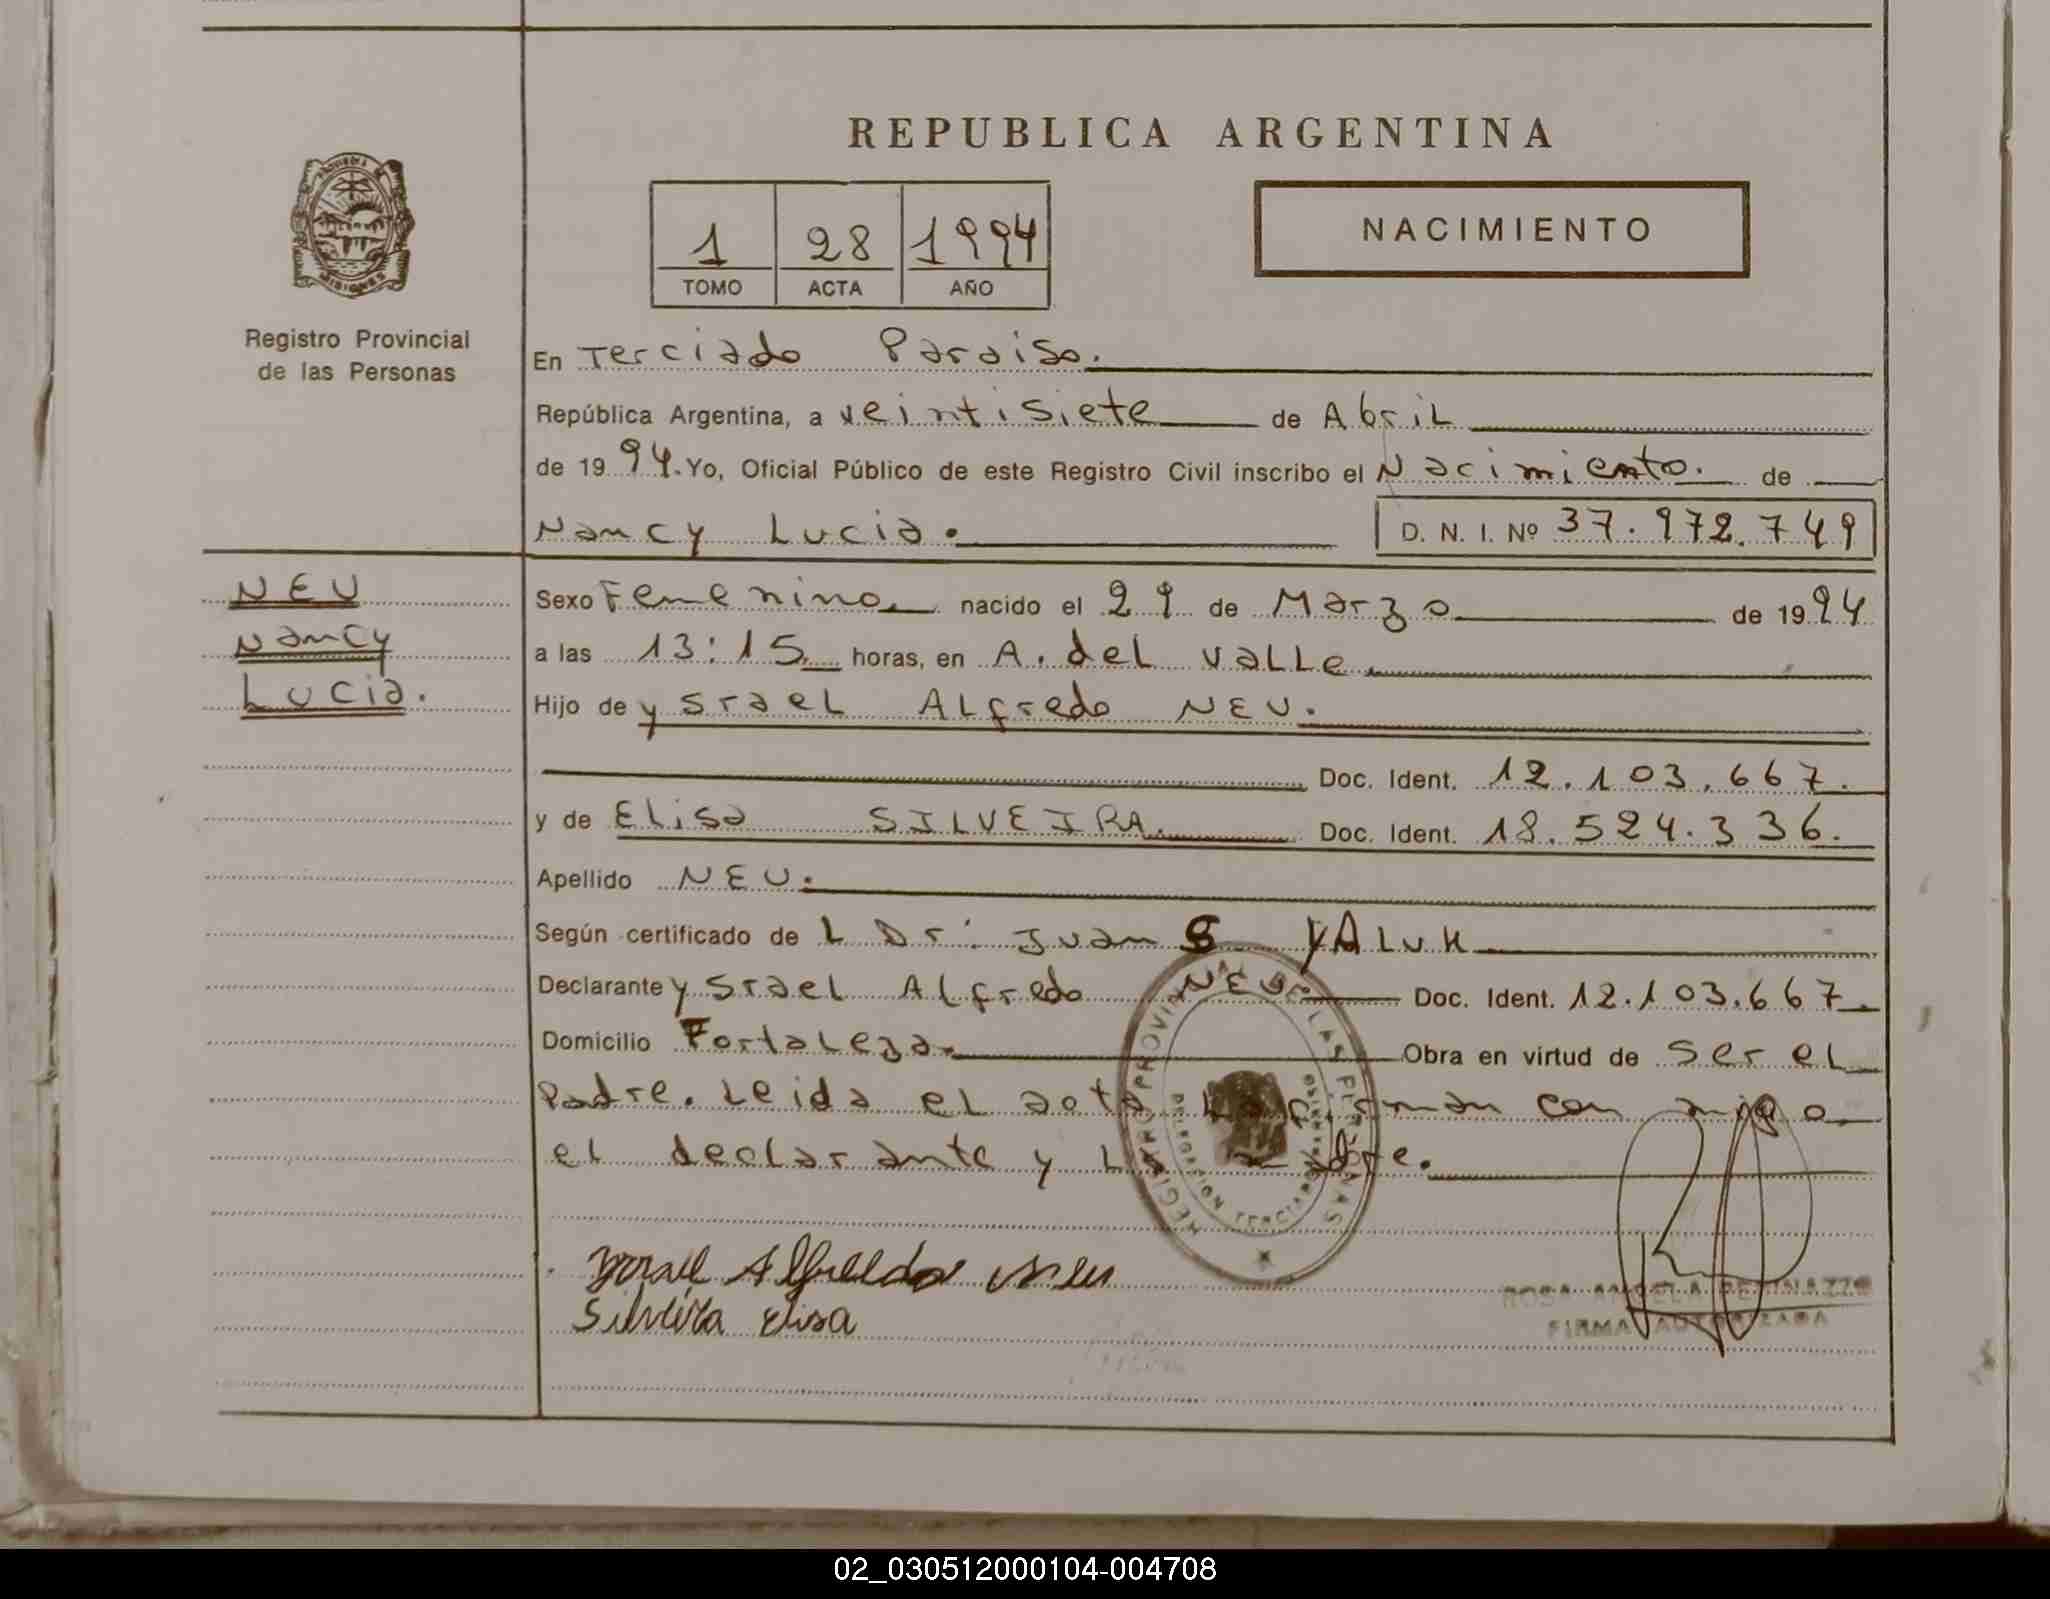 REPUBLICA ARGENTINA
PROVINCIA
MISIONES
Registro Provincial
de las Personas
1 28 1994
TOMO ACTA AÑO
NACIMIENTO
En Terciado Paraiso.
República Argentina, a veintisiete de Abril
de 1994. Yo, Oficial Público de este Registro Civil inscribo el Nacimiento. de
Nancy Lucia. D. N. I. Nº 37.972.749
NEU
Nancy
Lucia.
Sexo Femenino nacido el 29 de Marzo de 1994
a las 13:15 horas, en A. del valle.
Hijo de Ysrael Alfredo NEU.
Doc. Ident. 12.103.667.
y de Elisa SILVEIRA. Doc. Ident. 18.524.336.
Apellido NEU.
Según certificado de L Dr: Juan S YALUK
Declarante Ysrael Alfredo NEU. Doc. Ident. 12.103.667.
Domicilio Fortaleza. Obra en virtud de ser el
Padre. Leida el acta La firman con migo
el declarante y La madre.
REGISTRO PROVINCIAL DE LAS PERSONAS
DELEGACION TERCIADO
Ysrael Alfredo Neu
Silveira elisa
ROSA ANGELA
FIRMA AUTORIZADA
02_030512000104-004708